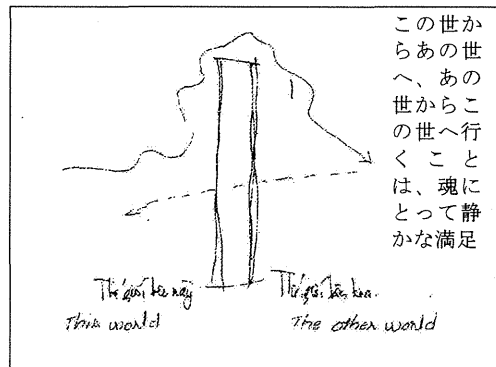 この世か
らあの世
へ、あの
世からこ
の世へ行
くこと
は、魂に
とって静
かな満足
Thế giới bên này
Thế giới bên kia
This world
The other world